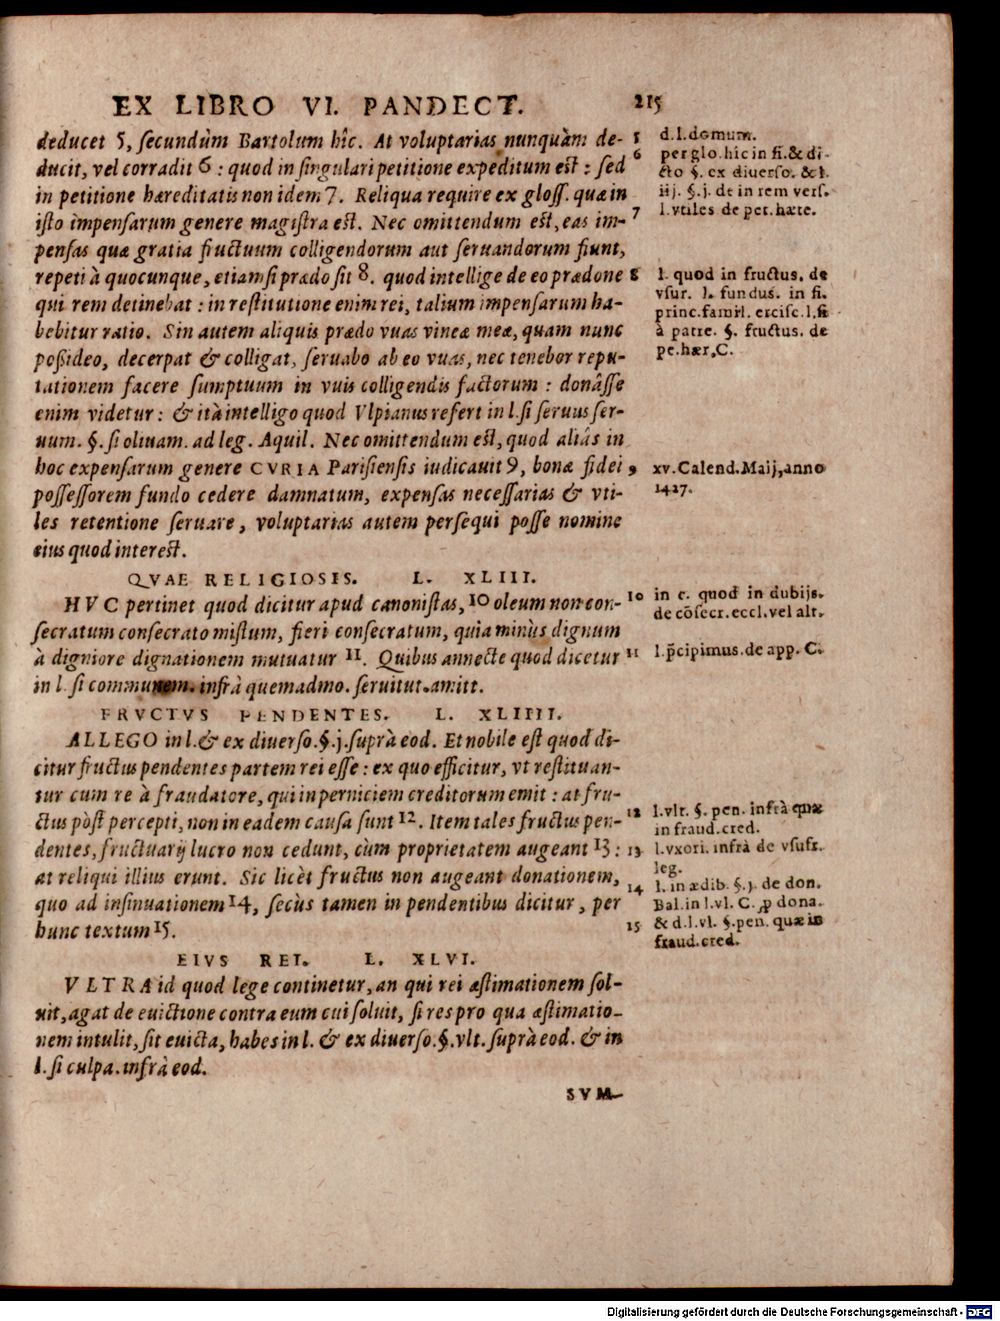 EX LIBRO VI. PANDECT. 215
deducet 5, ſecundùm Bartolum hîc. At voluptarias nunquàm de-
ducit, vel corradit 6 : quod in ſingulari petitione expeditum eſt : ſed
in petitione hæreditatis non idem 7. Reliqua require ex gloſſ. quæ in
iſto impenſarum genere magiſtra eſt. Nec omittendum eſt, eas im-
penſas quæ gratia fructuum colligendorum aut ſeruandorum fiunt,
repeti à quocunque, etiamſi prædo ſit 8. quod intellige de eo prædone
qui rem detinebat : in reſtitutione enim rei, talium impenſarum ha-
bebitur ratio. Sin autem aliquis prædo vuas vineæ meæ, quam nunc
poßideo, decerpat & colligat, ſeruabo ab eo vuas, nec tenebor repu-
tationem facere ſumptuum in vuis colligendis factorum : donâſſe
enim videtur : & ità intelligo quod Vlpianus refert in l. ſi ſeruus ſer-
uum. §. ſi oliuam. ad leg. Aquil. Nec omittendum eſt, quod aliâs in
hoc expenſarum genere CVRIA Pariſienſis iudicauit 9, bonæ fidei
poſſeſſorem fundo cedere damnatum, expenſas neceſſarias & vti-
les retentione ſeruare, voluptarias autem perſequi poſſe nomine
eius quod intereſt.
QVAE RELIGIOSIS. L. XLIII.
HVC pertinet quod dicitur apud canoniſtas, 10 oleum non con-
ſecratum conſecrato miſtum, fieri conſecratum, quia minùs dignum
à digniore dignationem mutuatur 11. Quibus annecte quod dicetur
in l. ſi communem. infrà quemadmo. ſeruitut. amitt.
FRVCTVS PENDENTES. L. XLIIII.
ALLEGO in l. & ex diuerſo. §. j. ſuprà eod. Et nobile eſt quod di-
citur fructus pendentes partem rei eſſe : ex quo efficitur, vt reſtituan-
tur cum re à fraudatore, qui in perniciem creditorum emit : at fru-
ctus pòſt percepti, non in eadem cauſa ſunt 12. Item tales fructus pen-
dentes, fructuarij lucro non cedunt, cùm proprietatem augeant 13 :
at reliqui illius erunt. Sic licèt fructus non augeant donationem,
quo ad inſinuationem 14, ſecùs tamen in pendentibus dicitur, per
hunc textum 15.
EIVS REI. L. XLVI.
VLTRA id quod lege continetur, an qui rei æſtimationem ſol-
uit, agat de euictione contra eum cui ſoluit, ſi res pro qua æſtimatio-
nem intulit, ſit euicta, habes in l. & ex diuerſo. §. vlt. ſuprà eod. & in
l. ſi culpa. infrà eod.
SVM-
5 d. l. domum.
6 per glo. hîc in fi. & di-
cto §. ex diuerſo. & l.
iij. §. j. de in rem verſ.
7 l. vtiles de pet. hære.
8 l. quod in fructus. de
vſur. l. fundus. in fi.
princ. famil. erciſc. l. ſi
à patre. §. fructus. de
pe. hær. C.
9 xv. Calend. Maij, anno
1427.
10 in c. quod in dubijs.
de cōſecr. eccl. vel alt.
11 l. p̄cipimus. de app. C.
12 l. vlt. §. pen. infrà quæ
in fraud. cred.
13 l. vxori. infrà de vſufr.
leg.
14 l. in ædib. §. j. de don.
Bal. in l. vl. C. ꝓ dona.
15 & d. l. vl. §. pen. quæ in
fraud. cred.
Digitalisierung gefördert durch die Deutsche Forschungsgemeinschaft - DFG